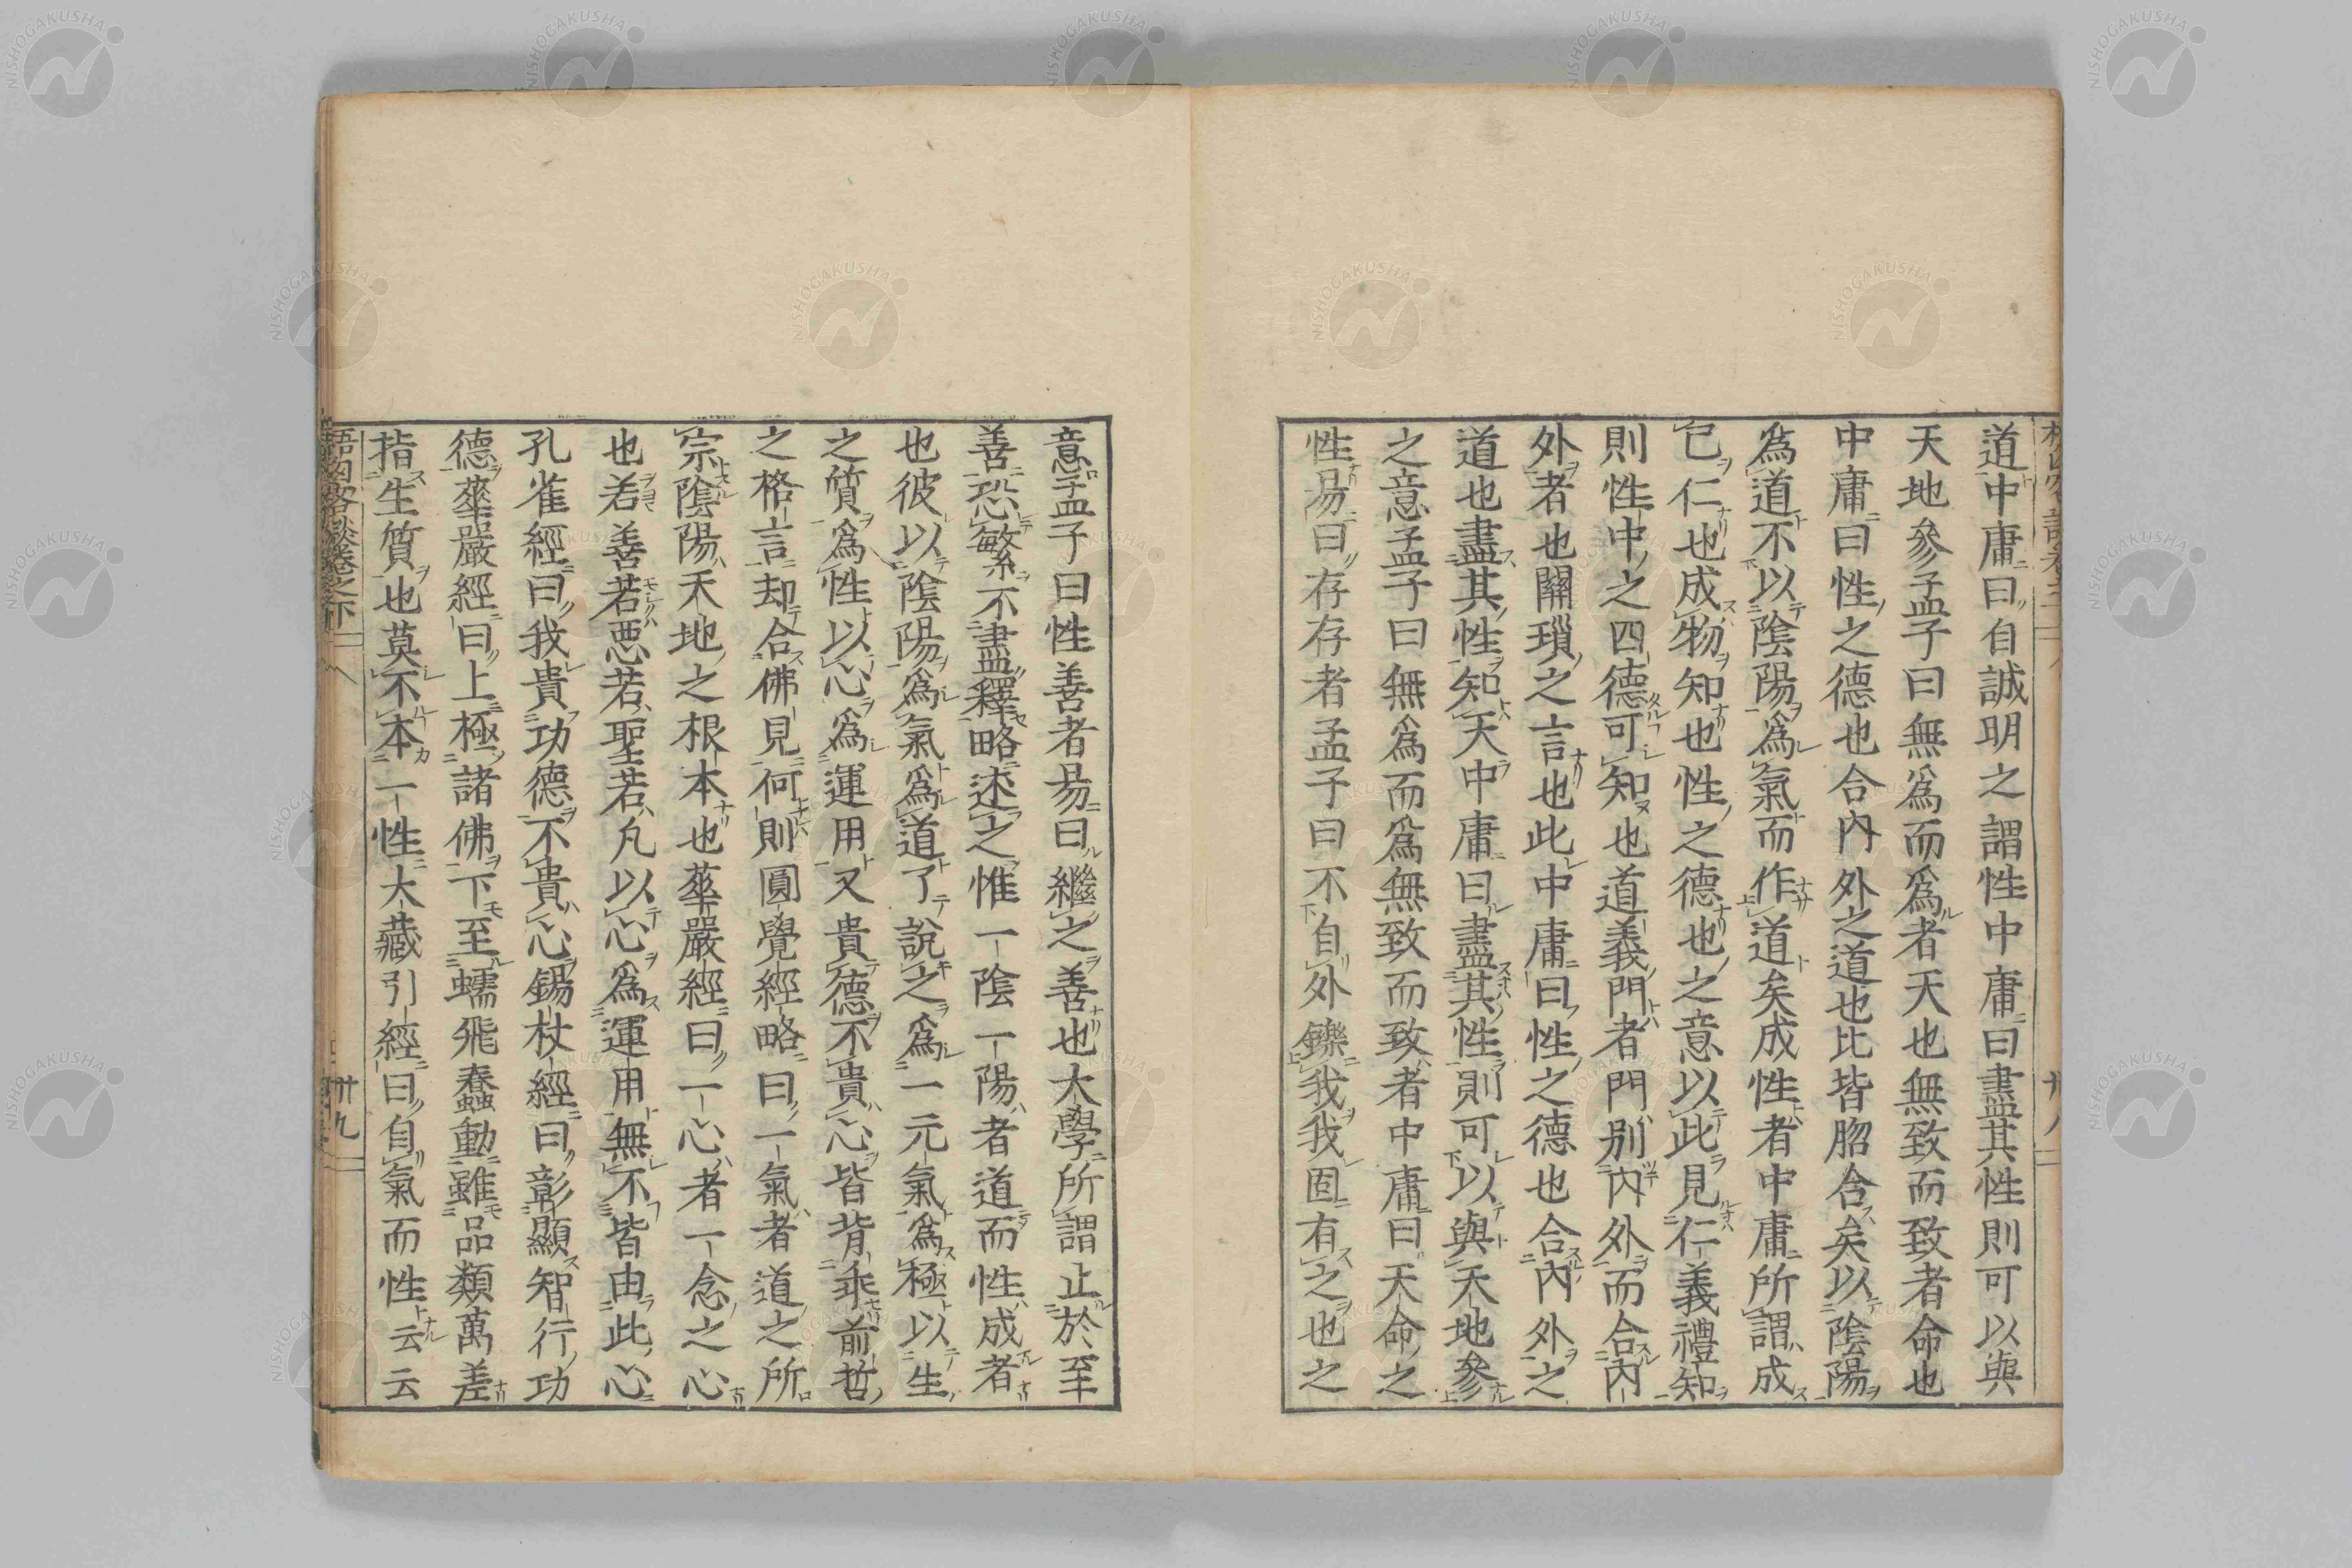 道中庸曰自誠明之謂性中庸曰盡其性則可以與
天地參孟子曰無爲而爲者天也無致而致者命也
中庸曰性之德也合內外之道也比皆脗合矣以陰陽
爲道不以陰陽爲氣而作道矣成性者中庸所謂成
已仁也成物知也性之德也之意以此見仁義禮知
則性中之四德可知也道義門者門別內外而合內
外者也關瑣之言也此中庸曰性之德也合內外之
道也盡其性知天中庸曰盡其性則可以與天地參
之意孟子曰無爲而爲無致而致者中庸曰天命之
性易曰存存者孟子曰不自外鑠我我固有之也之
意孟子曰性善者易曰繼之善也大學所謂止於至
善恐繁不盡釋略述之惟一陰一陽者道而性成者
也彼以陰陽爲氣爲道了說之爲一元氣爲極以生
之質爲性以心爲運用又貴德不貴心皆背乖前哲
之格言却合佛見何則圓覺經略曰一氣者道之所
宗陰陽天地之根本也華嚴經曰一心者一念之心
也若善若惡若聖若凡以心爲運用無不皆由此心
孔雀經曰我貴功德不貴心錫杖經曰彰顯智行功
德華嚴經曰上極諸佛下至蠕飛蠢動雖品類萬差
指生質也莫不本一性大藏引經曰自氣而性云云
卷之下
卅九
NISHOGAKUSHA